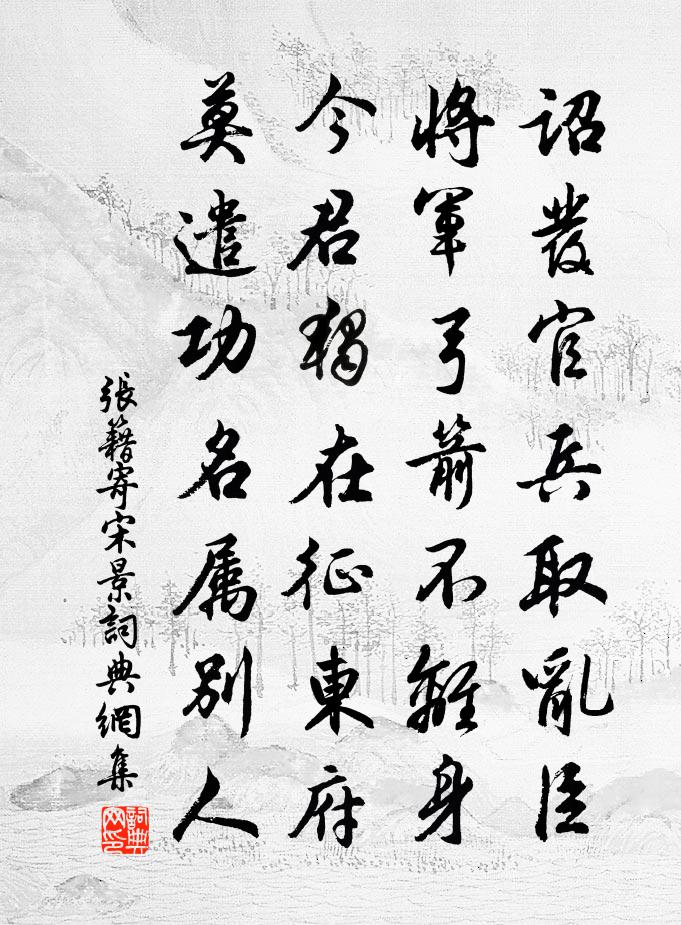 詔發官兵取亂臣
將軍弓箭不離身
今君獨在征東府
莫遣功名属別人
張籍寄宋景詞典網集
詞典网印